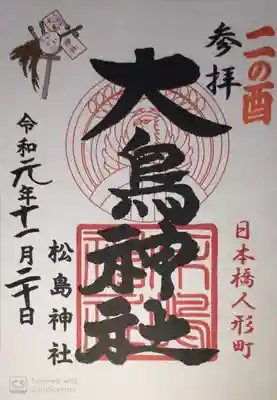 二の酉
参拝
大鳥神社
日本橋人形町
松島神社
令和元年十一月二十日
CS Scanned with
CamScanner